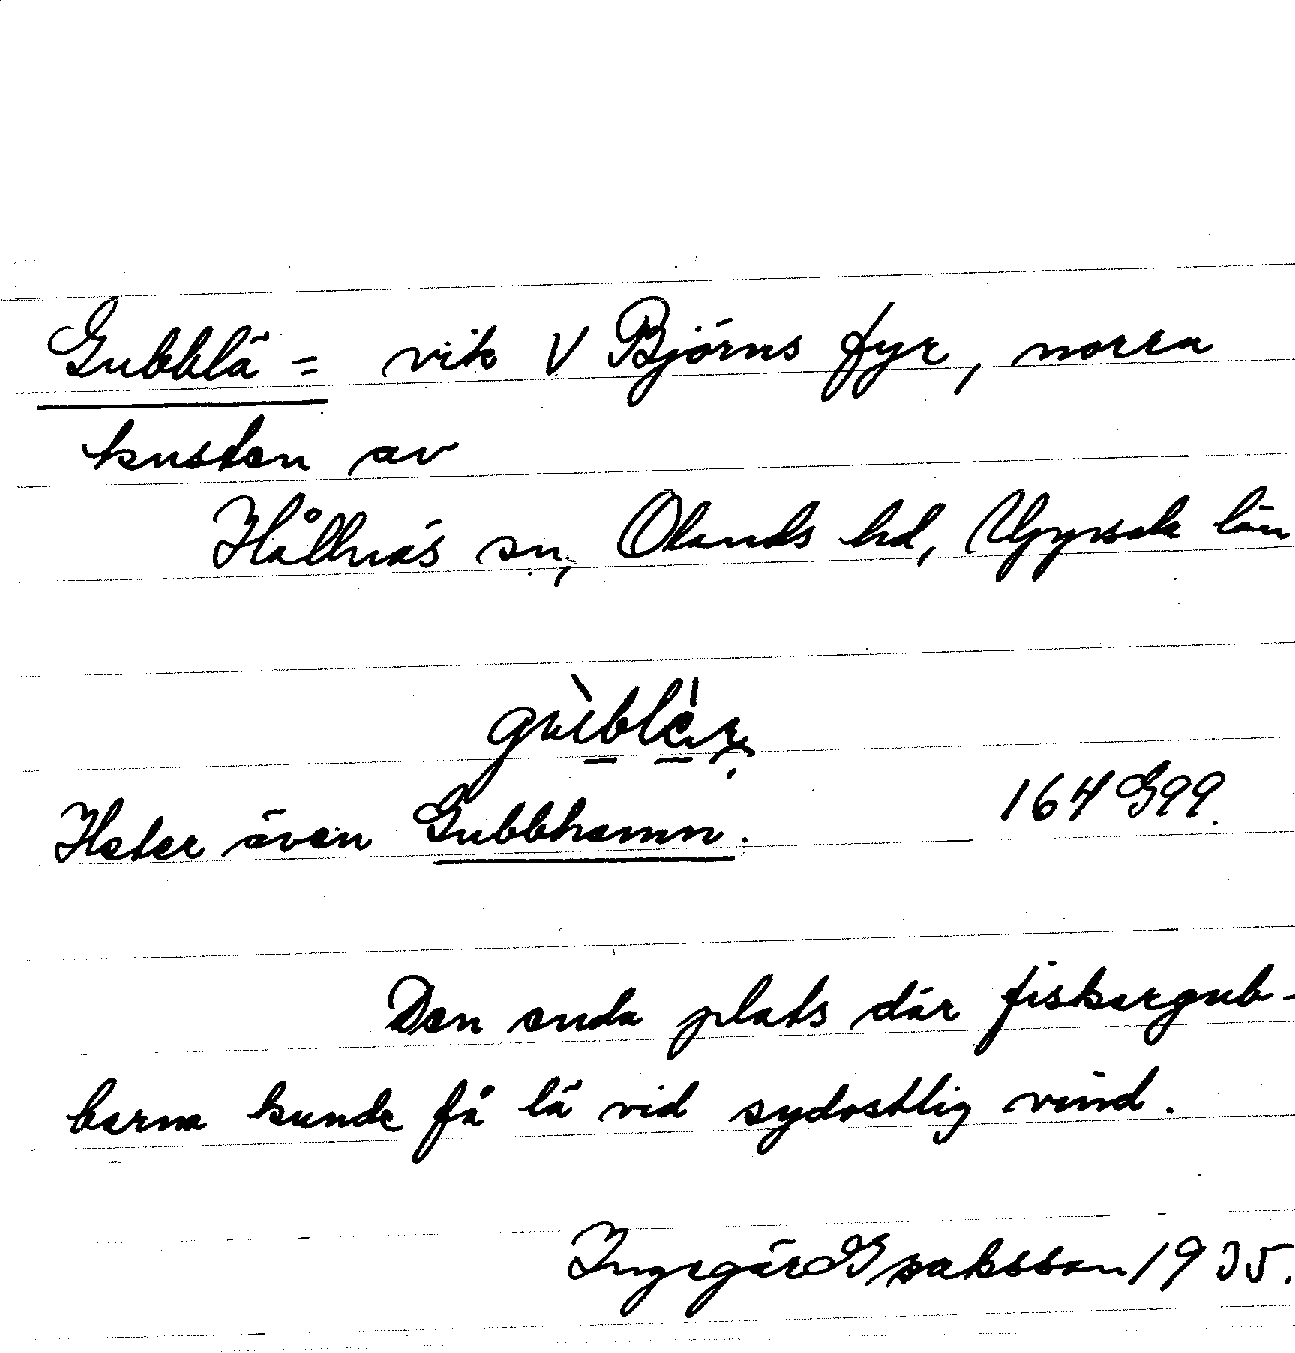 Gubblä = vik V Björns fyr, norra
kusten av
Hållnäs sn, Olands hd, Uppsala län
Heter även Gubbhamn. 164 G99.
Den enda plats där fiskargub-
barna kunde få lä vid sydostlig vind.
Ingegärd Isaksson 1935.